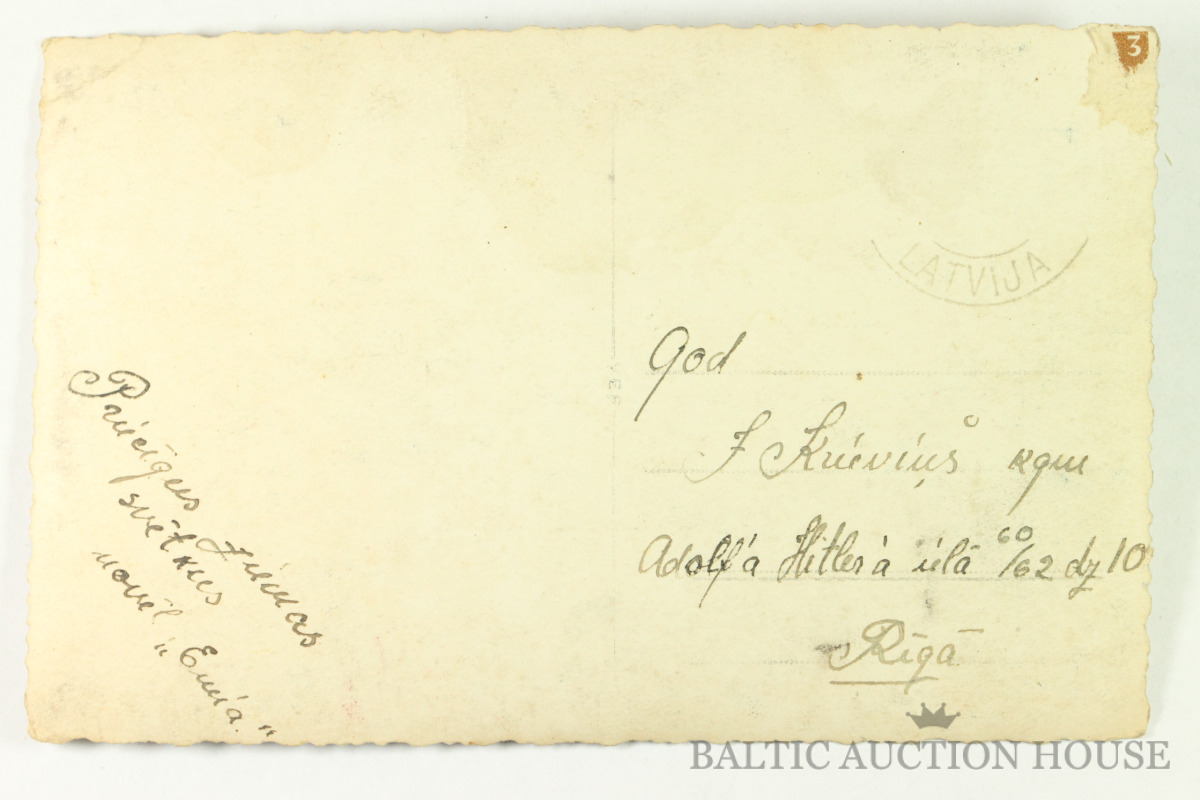 3
LATVIJA
Priecīgus Ziemas
svētkus
novēl
"Emīa."
God
J Krieviņš kgm
Adolfa Hitlera ielā 60/62 dz 10
Rīgā
BALTIC AUCTION HOUSE